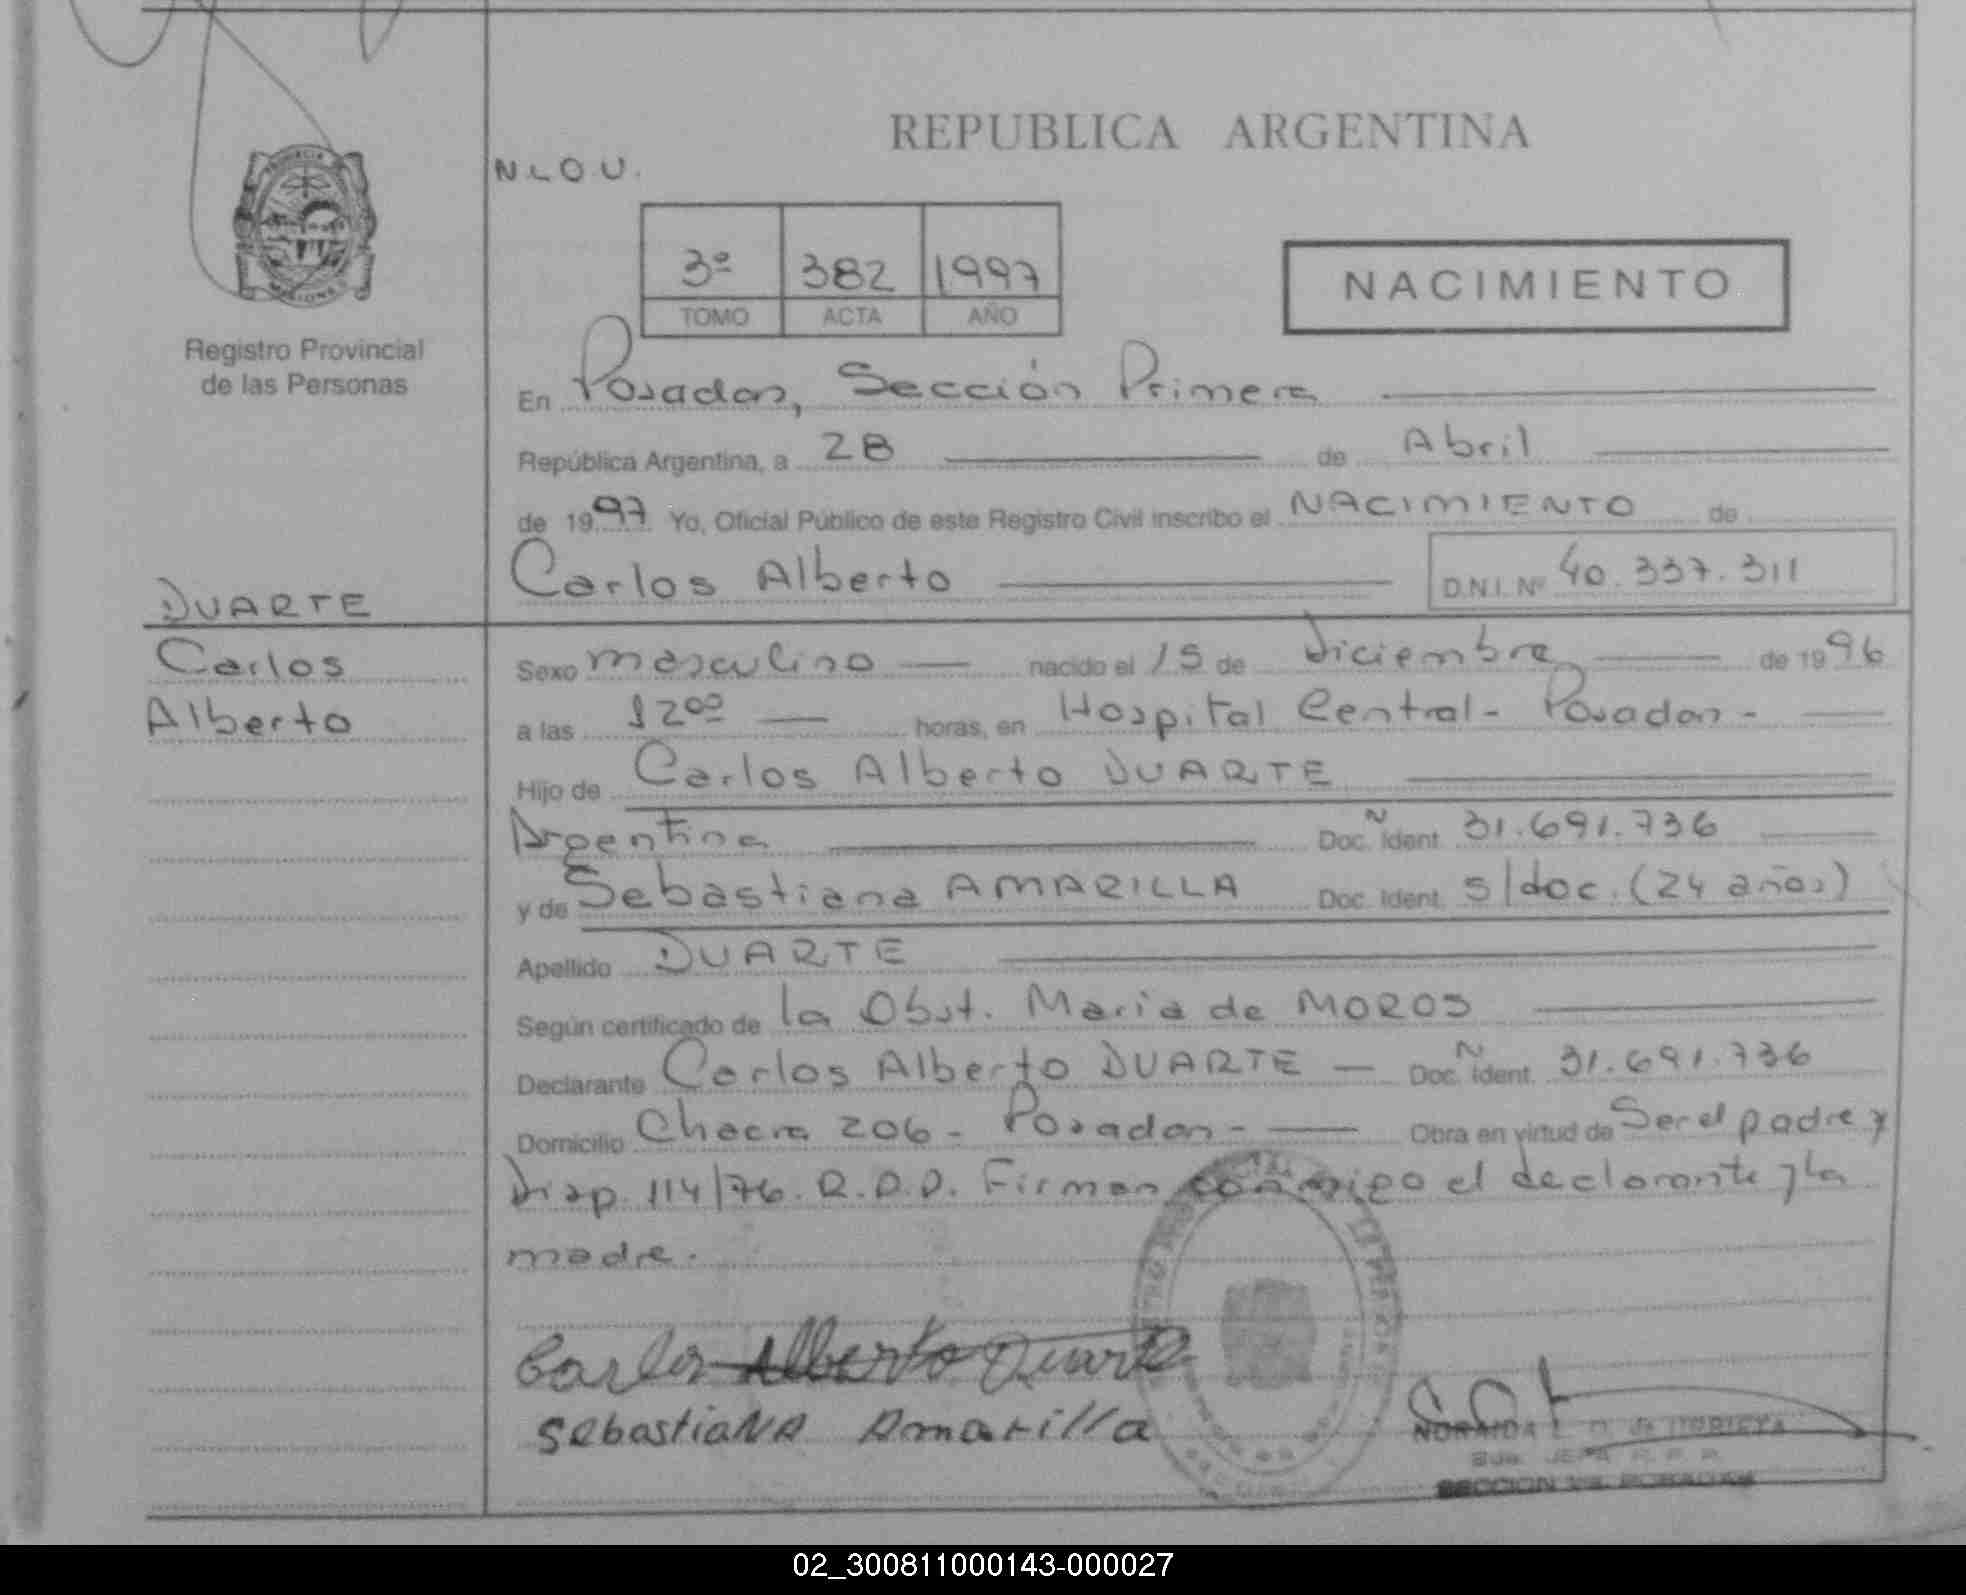 REPUBLICA ARGENTINA
N.L.O.U.
3º 382 1997
TOMO ACTA AÑO
NACIMIENTO
PROVINCIA
MISIONES
Registro Provincial
de las Personas
En Posadas, Sección Primera
República Argentina, a 28 de Abril
de 1997 Yo, Oficial Público de este Registro Civil inscribo el NACIMIENTO de
Carlos Alberto D.N.I. Nº 40.337.311
DUARTE
Carlos
Alberto
Sexo masculino nacido el 15 de Diciembre de 1996
a las 12⁰⁰ horas, en Hospital Central - Posadas -
Hijo de Carlos Alberto DUARTE
Argentina Doc. N Ident. 31.691.736
y de Sebastiana AMARILLA Doc. Ident. s/doc. (24 años)
Apellido DUARTE
Según certificado de la Obst. Maria de MOROS
Declarante Carlos Alberto DUARTE — Doc. N Ident. 31.691.736
Domicilio Chacra 206 - Posadas - Obra en virtud de Ser el padre y
Disp. 114/76. R.P.P. Firman conmigo el declarante y la
madre.
Carlos Alberto Duarte
Sebastiana Amarilla
SECCION 1ra. POSADAS
02_300811000143-000027